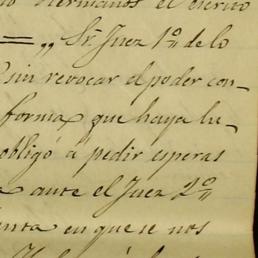 Hermanos el escrito
= „ Sr. Juez 1º de lo
sin revocar el poder con-
forma que haya lu-
obligó á pedir esperas
ante el Juez 2º
enta en que se nos